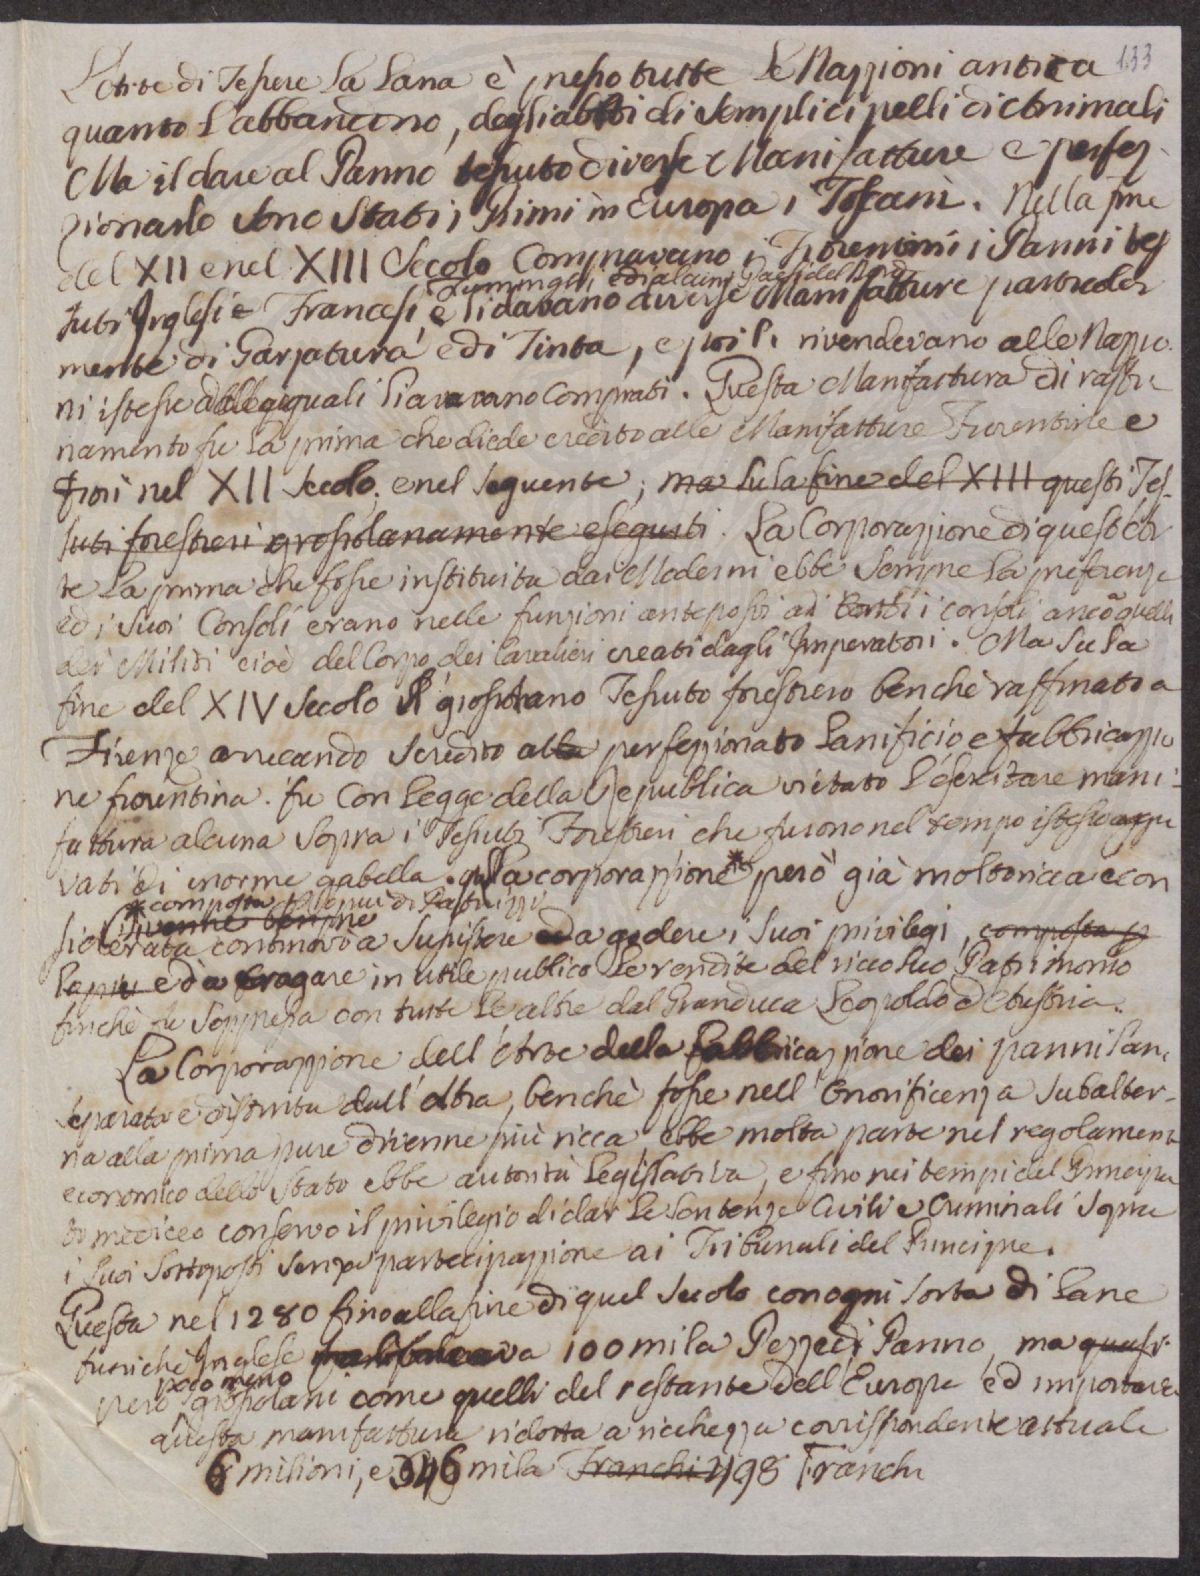 133
L'Arte di Tessere la Lana è presso tutte le Nazzioni antica
quanto l'abbandono, degli abiti di semplici pelli di Animali
Ma il dare al Panno tessuto diverse Manifatture e perfez
zionarlo sono stati i Primi in Europa i Toscani. Nella fine
del XII e nel XIII Secolo Compravano i Fiorentini i Panni tes
Fiamminghi, ed alcuni Paesi del Nord
suti Inglesi e Francesi, e li davano diverse Manifatture particolar
mente di Garzatura e di Tinta, e poi li rivendevano alle Nazzio
ni istesse dalle quali li avevano Comprati. Questa Manifattura di raffi
namento fu la prima che diede credito alle Manifatture Fiorentine e
fiorì nel XII secolo, e nel seguente; ma su la fine del XIII questi Tes-
suti forestieri grossolanamente eseguiti. La Corporazzione di quest'Ar
te la prima che fosse instituita dai Moderni ebbe sempre la preferenza
ed i suoi Consoli erano nelle funzioni anteposti ai i consoli anco quelli
dei Militi cioè del Corpo dei Cavalieri creati dagli Imperatori. Ma su la
fine del XIV secolo il grossolano Tessuto forestiero benchè raffinato a
Firenze arrecando scredito al perfezzionato Lanificio e fabbricazzio
ne fiorentina. fu Con Legge della Republica vietato l'esercitare mani-
fattura alcuna sopra i Tessuti Forestieri che furono nel tempo istesso aggra
vati di enorme gabella. La corporazzione* però già molto ricca e con
*composta
divenne
siderata continovò a sussistere e a godere i suoi privilegi, composta
la più ed a erogare in utile publico le rendite del ricco suo Patrimonio
finchè fu soppressa con tutte le altre dal Granduca Leopoldo d'Austria.
La Corporazzione dell'Arte della fabbricazzione dei panni lani
separata e distinta dall'altra, benchè fosse nell'Onorificenza subalter-
na alla prima pure divenne più ricca ebbe molta parte nel regolamento
economico dello Stato ebbe autorità legislativa, e fino nei tempi del Principa
to mediceo conservò il privilegio di dar le Sentenze Civili e Criminali sopra
i suoi Sottoposti senza partecipazzione ai Tribunali del Principe.
Questa nel 1280 fino alla fine di quel secolo con ogni sorta di Lane
fuori che Inglese 100 mila Pezze di Panno, ma quasi
poco meno
però grossolani come quelli del restante dell'Europa ed importava
questa manifattura ridotta a ricchezza corrispondente attuale
6 milioni, e 346 mila Franchi 498 Franchi